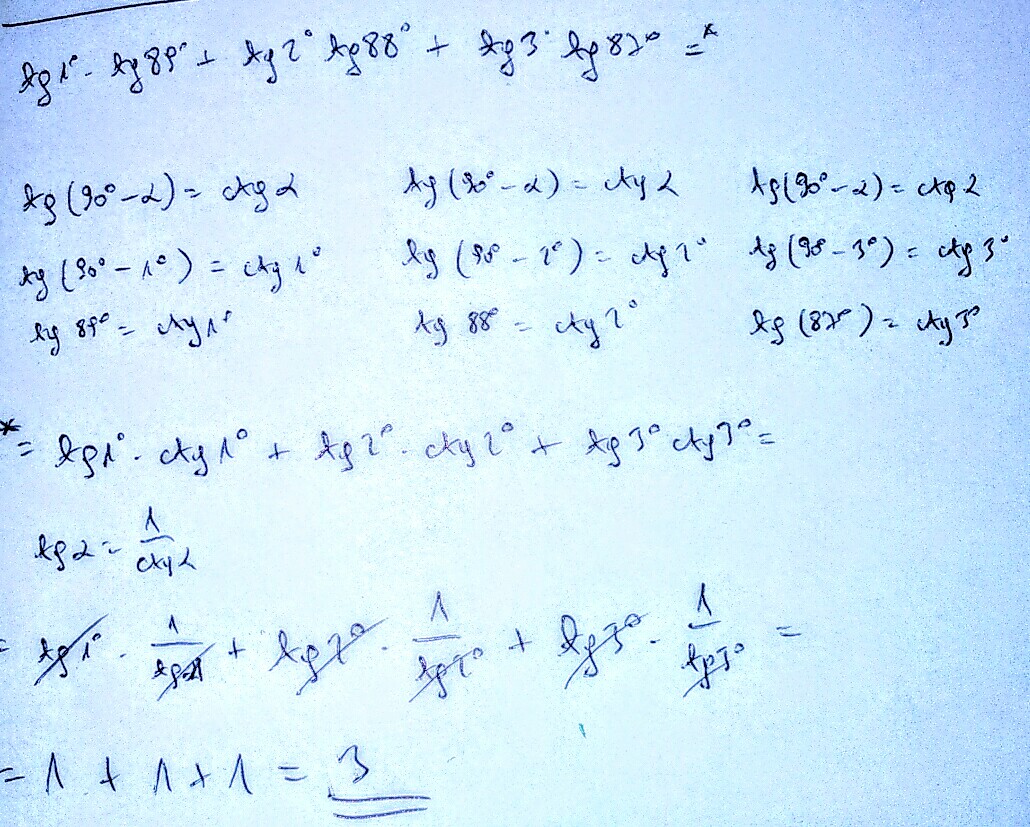 tg 1° · tg 89° + tg 2° tg 88° + tg 3° · tg 87° =*
tg (90° - α) = ctg α tg (90° - α) = ctg α tg (90° - α) = ctg α
tg (90° - 1°) = ctg 1° tg (90° - 2°) = ctg 2° tg (90° - 3°) = ctg 3°
tg 89° = ctg 1° tg 88° = ctg 2° tg (87°) = ctg 3°
*= tg 1° · ctg 1° + tg 2° · ctg 2° + tg 3° ctg 3° =
tg α = 1/ctg α
= tg 1° · 1/tg 1 + tg 2° · 1/tg 2° + tg 3° · 1/tg 3° =
= 1 + 1 + 1 = 3